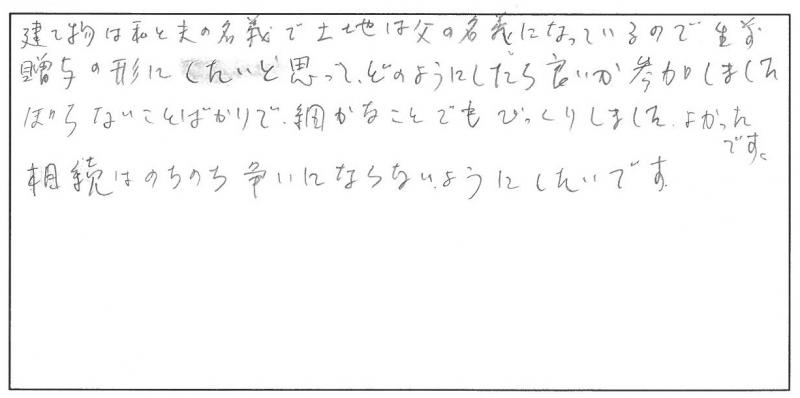 建て物は私と夫の名義で土地は父の名義になっているので生前
贈与の形にしたいと思って、どのようにしたら良いか参加しました
らないことばかりで、細かなことでもびっくりしました。よかった
です。
相続はのちのち争いにならないようにしたいです。